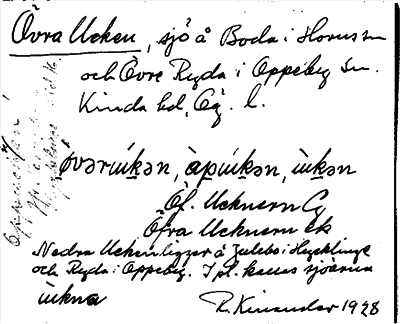 Övra Ucken, sjö å Boda i Horns sn
och Övre Ryda i Oppeby sn.
Kinda hd, Ög. l.
øvərùkən, àpùkən, ùkən
Öf. Ucknern G
Öfra Ucknern Ek
Nedra Ucken ligger å Julebo i Hycklinge
och Ryda i Oppeby. I pl. kallas sjöarna
ùkna
R. Kinander 1928